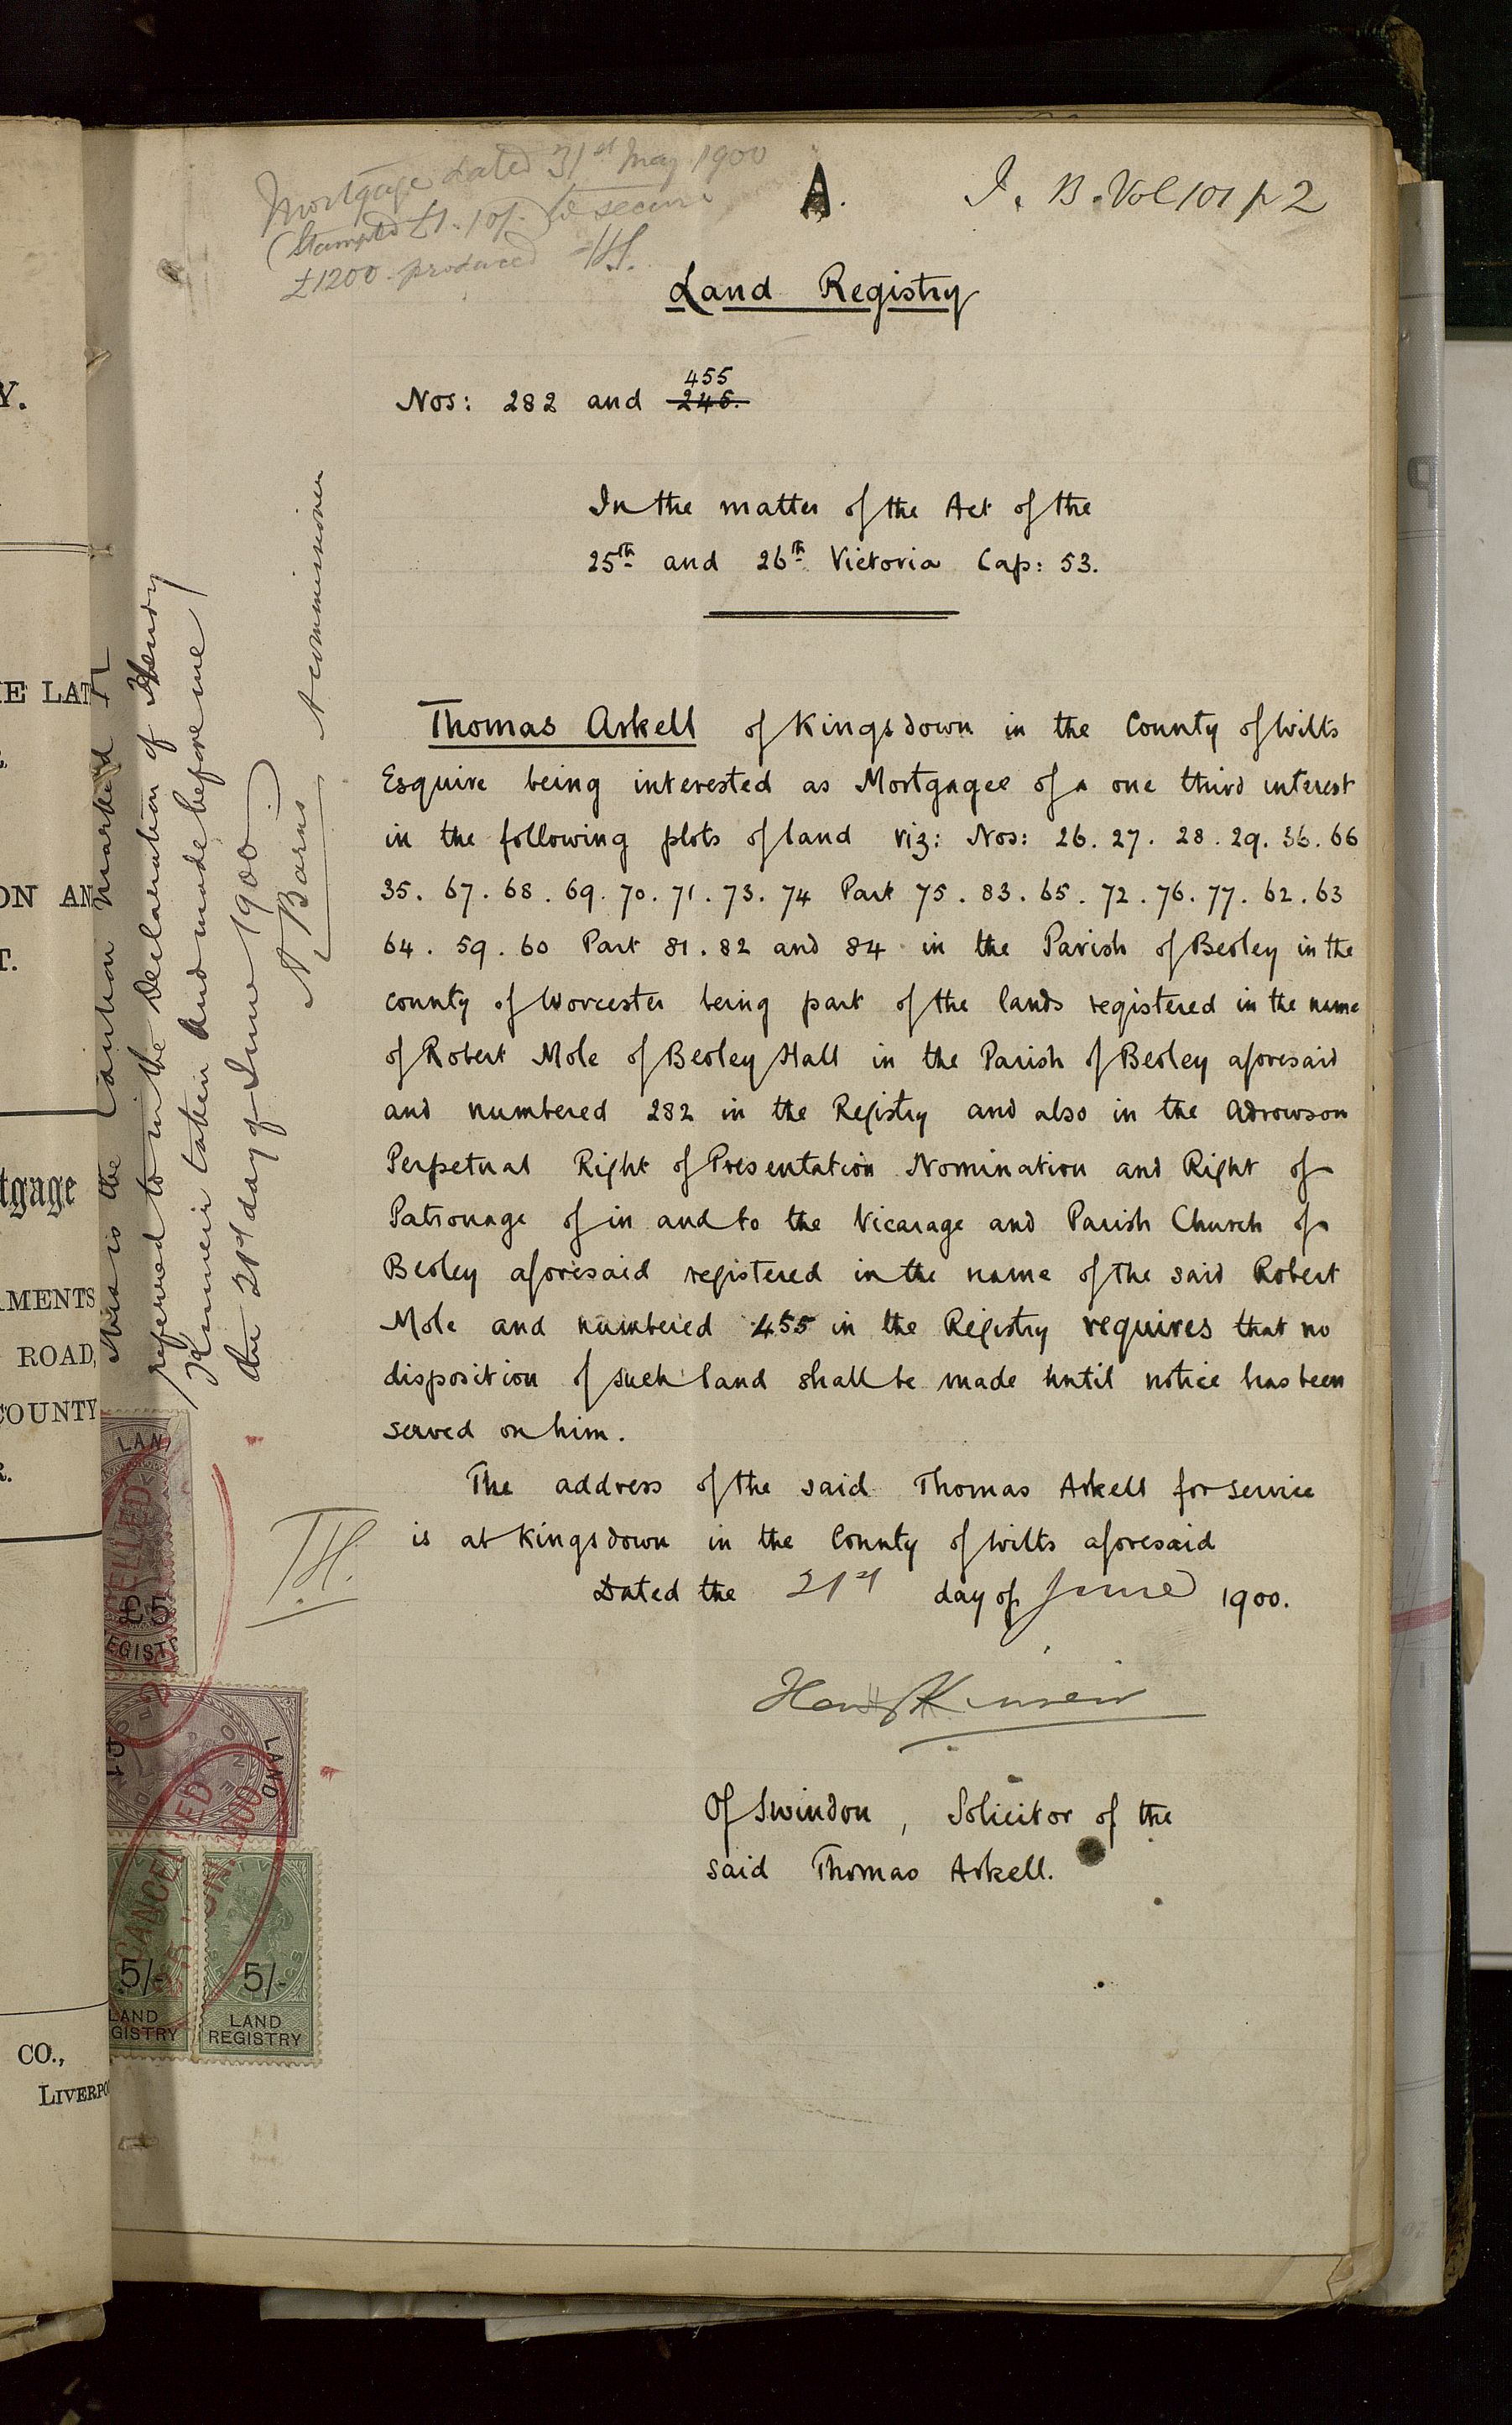 Mortgage dated 31st May 1900
(Stamped £1.10/-) to secure
£1200 produced
A.
I. B. Vol 101 p 2
Land Registry
455
Nos: 282 and 246.
In the matter of the Act of the
25th and 26th Victoria Cap: 53.
Thomas Arkell of Kingsdown in the County of Wilts
Esquire being interested as Mortgagee of a one third interest
in the following plots of land viz: Nos: 26. 27. 28. 29. 36. 66
35. 67. 68. 69. 70. 71. 73. 74 Part 75. 83. 65. 72. 76. 77. 62. 63
64. 59. 60 Part 81. 82 and 84 in the Parish of Beoley in the
county of Worcester being part of the lands registered in the name
of Robert Mole of Beoley Hall in the Parish of Beoley aforesaid
and numbered 282 in the Registry and also in the Advowson
Perpetual Right of Presentation Nomination and Right of
Patronage of in and to the Vicarage and Parish Church of
Beoley aforesaid registered in the name of the said Robert
Mole and numbered 455 in the Registry requires that no
disposition of such land shall be made until notice has been
served on him.
The address of the said Thomas Arkell for service
is at Kingsdown in the County of Wilts aforesaid
Dated the 21st day of June 1900.
Henry Kinneir
Of Swindon, Solicitor of the
said Thomas Arkell.
This is the Caution marked A
referred to in the Declaration of Henry
Kinneir taken and made before me
this 21st day of June 1900
A commissioner
TH.
LAND
CANCELLED
£5
LAND
CANCELLED
5/-
LAND
REGISTRY
5/-
LAND
REGISTRY
Y.
T.
tgage
AMENTS
ROAD,
COUNTY
R.
CO.,